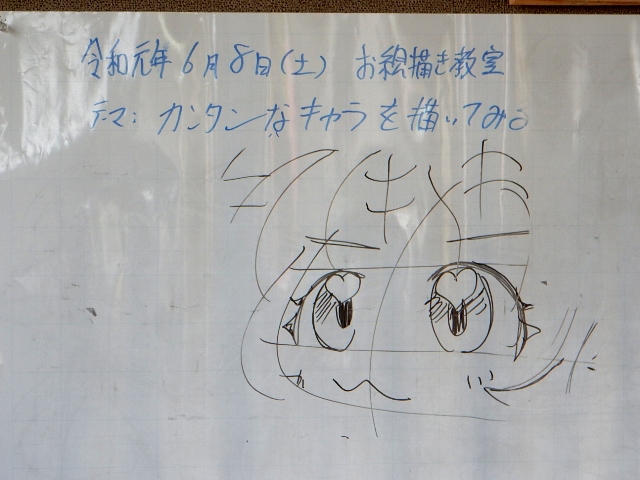 令和元年6月8日(土) お絵描き教室
テーマ:カンタンなキャラを描いてみる